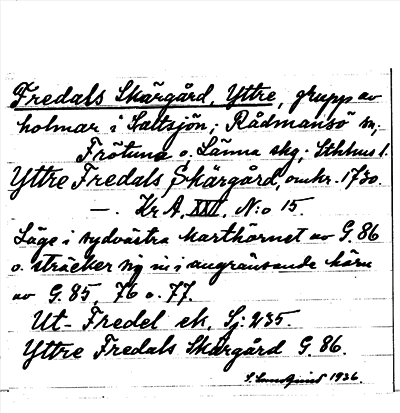 Fredals Skärgård, Yttre, grupp av
holmar i Saltsjön; Rådmansö sn;
Frötuna o. Länna skg; Sthlms l.
Yttre Fredals Skärgård, omkr. 1730.
—. Kr A, XXVI, N:o 15.
Läge i sydvästra karthörnet av G.86
o. sträcker sig in i angränsande hörn
av G.85, 76 o. 77.
Ut-Fredel ek. Sj: 235.
Yttre Fredals Skärgård G. 86.
S. Lundquist 1936.